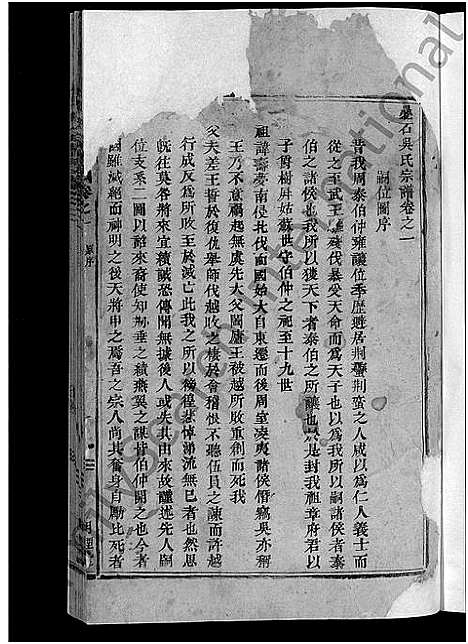 石吳氏宗譜卷之一
嗣位圖序
昔我周泰伯仲雍讓位季歷遜居荆蠻荆蠻之人咸以為仁人義士而
從之至武王伐暴受天命而為天子也以為我所以嗣諸侯者泰
伯之諸侯也我所以獲天下者泰伯之所讓也於是封我祖章府君以
子爵樹屛姑蘇世守伯仲之祀至十九世
祖諱壽夢南侵北伐而國始大自東遷而後周室凌夷諸侯僭竊吳亦稱
王乃不意禍起無虞先大父闔廬王被越所敗重創而死我
父夫差王誓於復仇舉師伐越敗之棲於會稽恨不聽伍員之諫而許越
行成反為所敗至於滅亡此我之所以稱徨悲悼涕流無已者也然思
旣往莫咎將來宜績誠恐傳聞無據後人或失其由來故謹述先人嗣
位支系二圖以詒來裔使知垂之績燕翼之謀伯仲開之也今者
國雖滅絕而神明之後天將申之焉吾之宗人尚其奮身自勵比死者
卷之一
原序